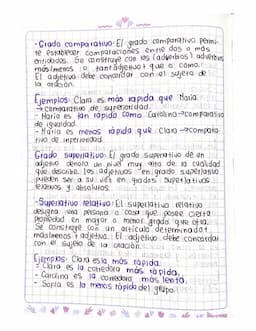 -Grado comparativo: El grado comparativo permi-
te establecer comparaciones entre dos o más
entidades. Se construye con los (adverbios) adverbios
más/menos (o tan)+adjetivo+ que o como.
El adjetivo debe concordar con el sujeto de
la oración.
Ejemplos: Clara es más rápida que María.
→comparativo de superioridad.
- María es tan rápida como Carolina→comparativo
de igualdad.
- María es menos rápida que Clara→compara-
tivo de inferioridad.
Grado superlativo: El grado superlativo de un
adjetivo denota un nivel muy alto de la cualidad
que describe. los adjetivos en grado superlativo
pueden ser a su vez en grados: superlativos
relativos y absolutos.
-Superlativo relativo: El superlativo relativo
designa una persona o cosa que posee cierta
propiedad en mayor o menor grado que otra.
Se construye con un artículo determinado+
más/menos + adjetivo. El adjetivo debe concordar
con el sujeto de la oración.
Ejemplos: Clara es la más rápida.
- Clara es la corredora más rápida.
- Carolina es la corredora más lenta.
- Sofía es la menos rápida del grupo.